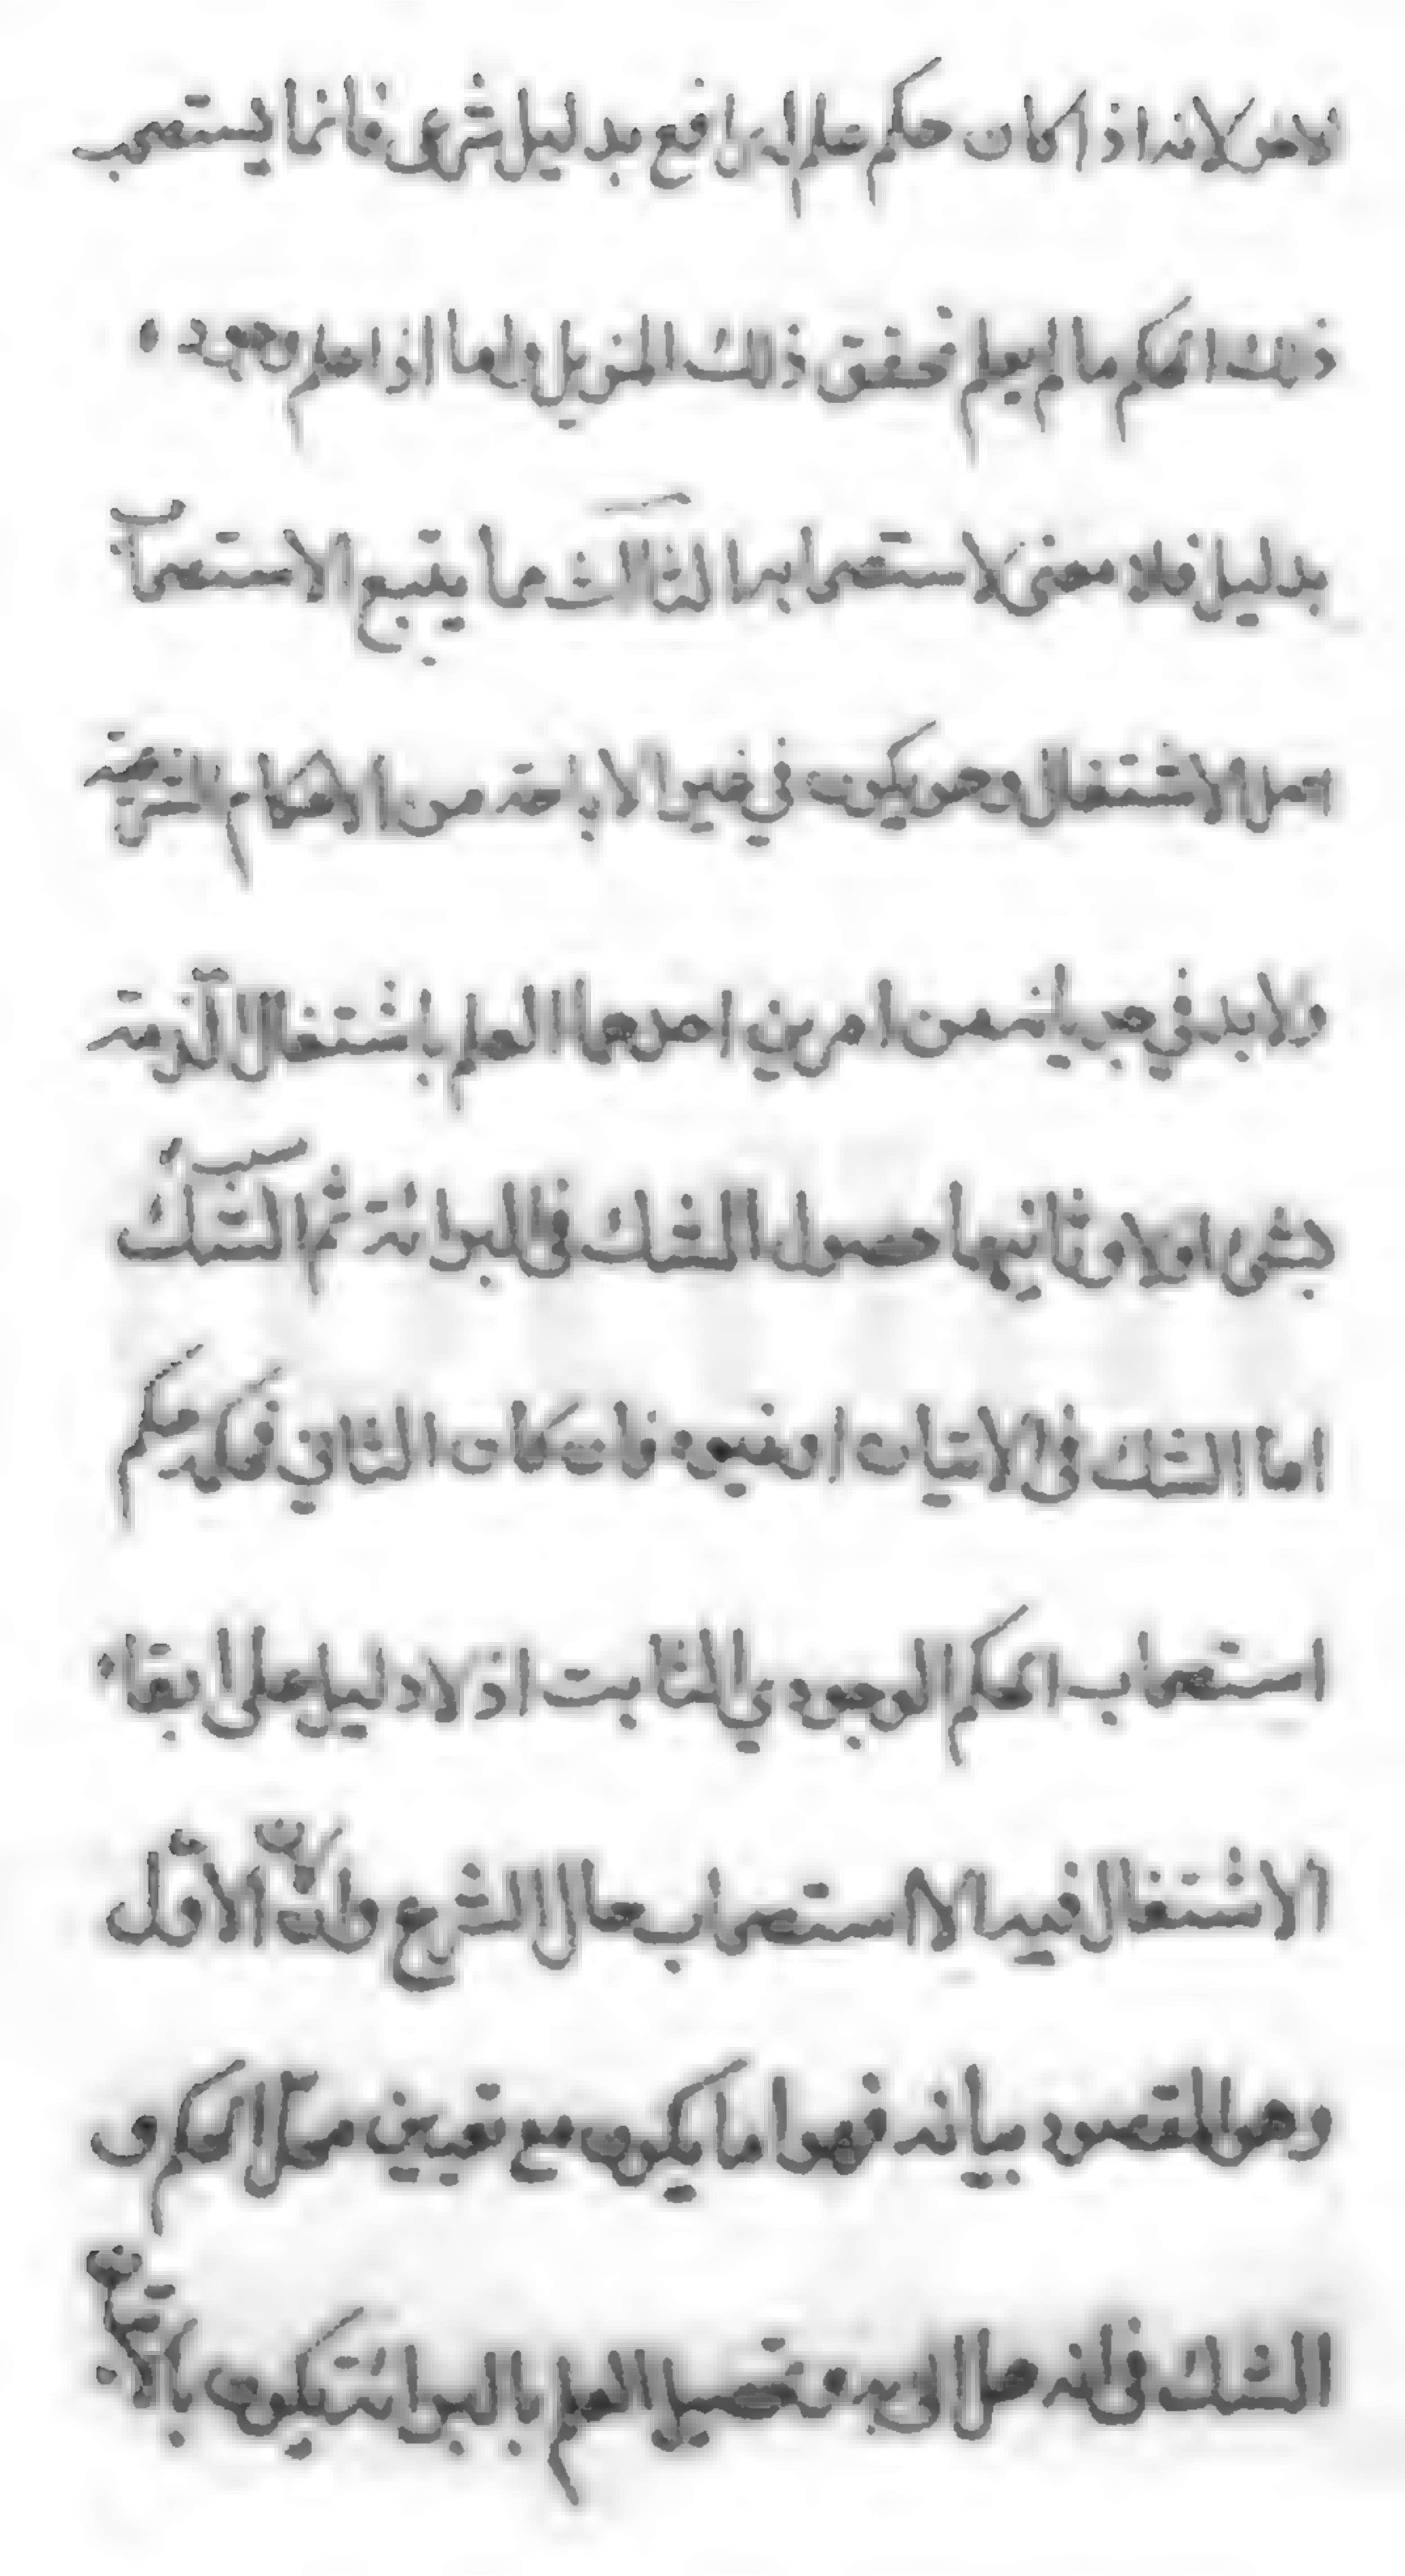 لانه اذا كان حكم علم له رافع بدليل شرعى فانما يستصحب
ذلك الحكم ما لم يعلم تحقق ذلك المزيل واما اذا علم وجوده
بدليل فلا معنى لاستصحابها الثالث مما يتبع الاستصحاب
اصل الاشتغال وهو يكون في غير الاباحة من الاحكام الشرعية
ولا بد في جريانه من امرين احدهما العلم باشتغال الذمة
بشىء اولا وثانيهما حصول الشك فى البرائة ثم الشك
اما الشك فى الاتيان او غيره فان كان الثانى فحكمه حكم
استصحاب الحكم الوجودي الثابت اذ لا دليل على بقاء
الاشتغال فيه الا استصحاب حال الشرع وان كان الاول
وهو المقصود بيانه فهو اما يكون مع تعيين محل الحكم و
الشك فى انه هل اتى به فتحصيل العلم بالبرائة يكون بالاتيان